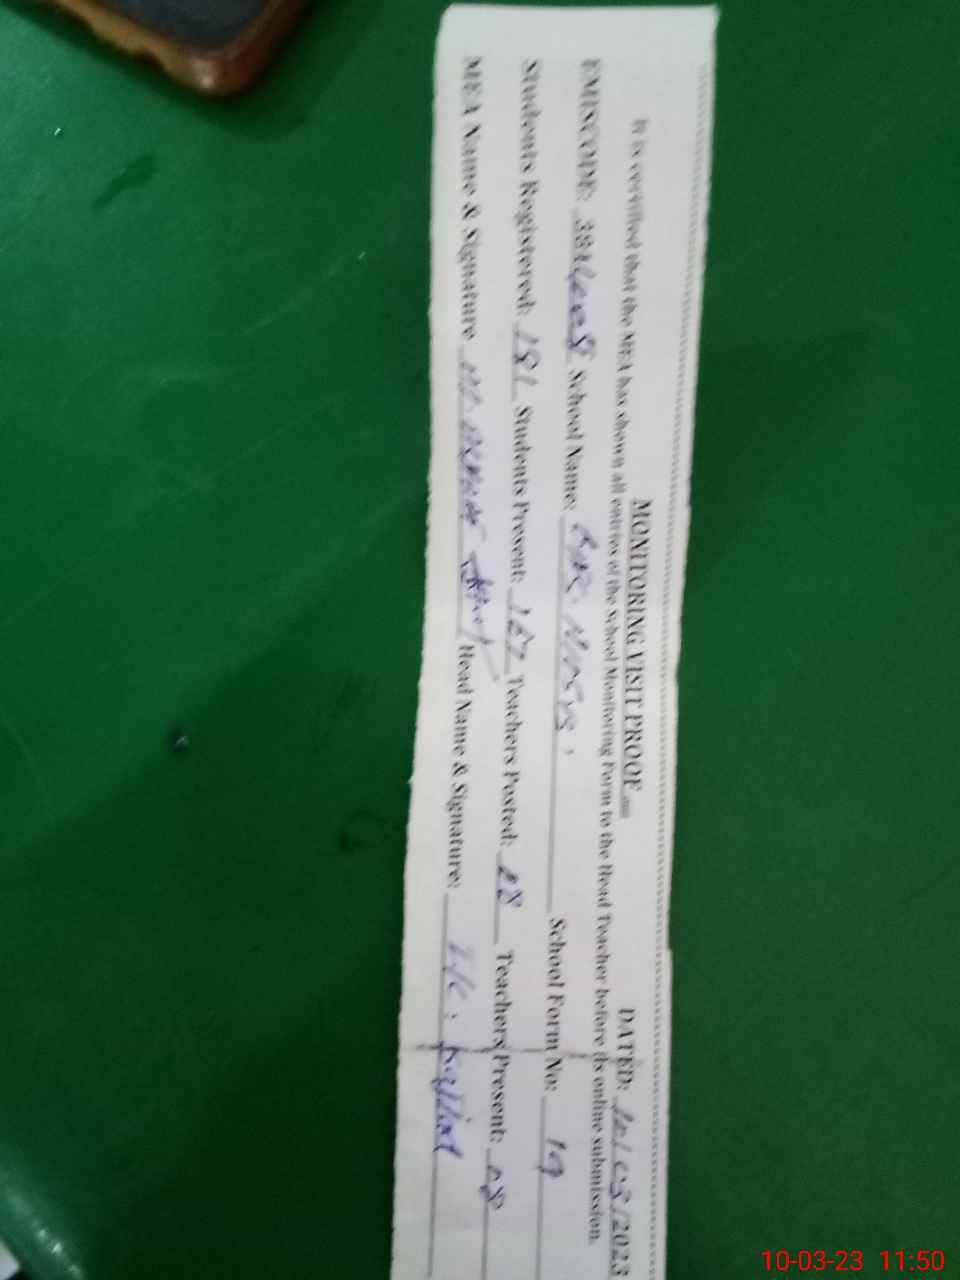 MONITORING VISIT PROOF DATED: 10/03/2023
It is certified that the MEA has shown all entries of the School Monitoring Form to the Head Teacher before its online submission.
EMISCODE: School Name: School Form No: 19
Students Registered: 181 Students Present: 167 Teachers Posted: 08 Teachers Present: 08
MEA Name & Signature Head Name & Signature:
10-03-23 11:50